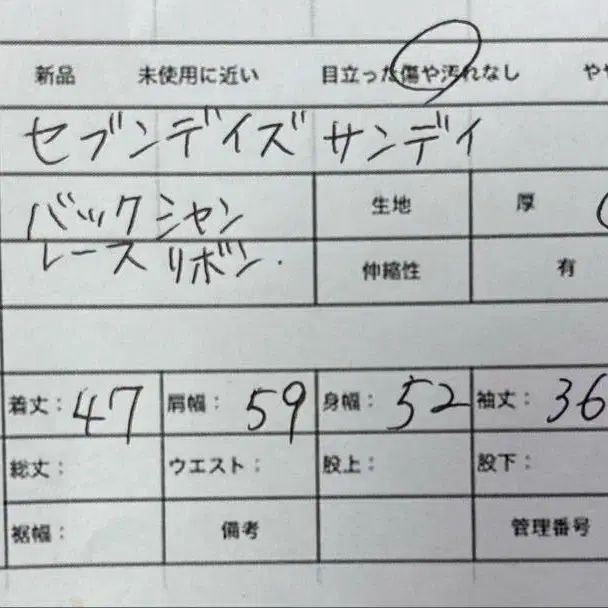 新品 未使用に近い 目立った傷や汚れなし やや
セブンデイズ サンデイ
バックシャン 生地 厚
レース リボン. 伸縮性 有
着丈：47 肩幅：59 身幅：52 袖丈：36
総丈： ウエスト： 股上： 股下：
裾幅： 備考 管理番号